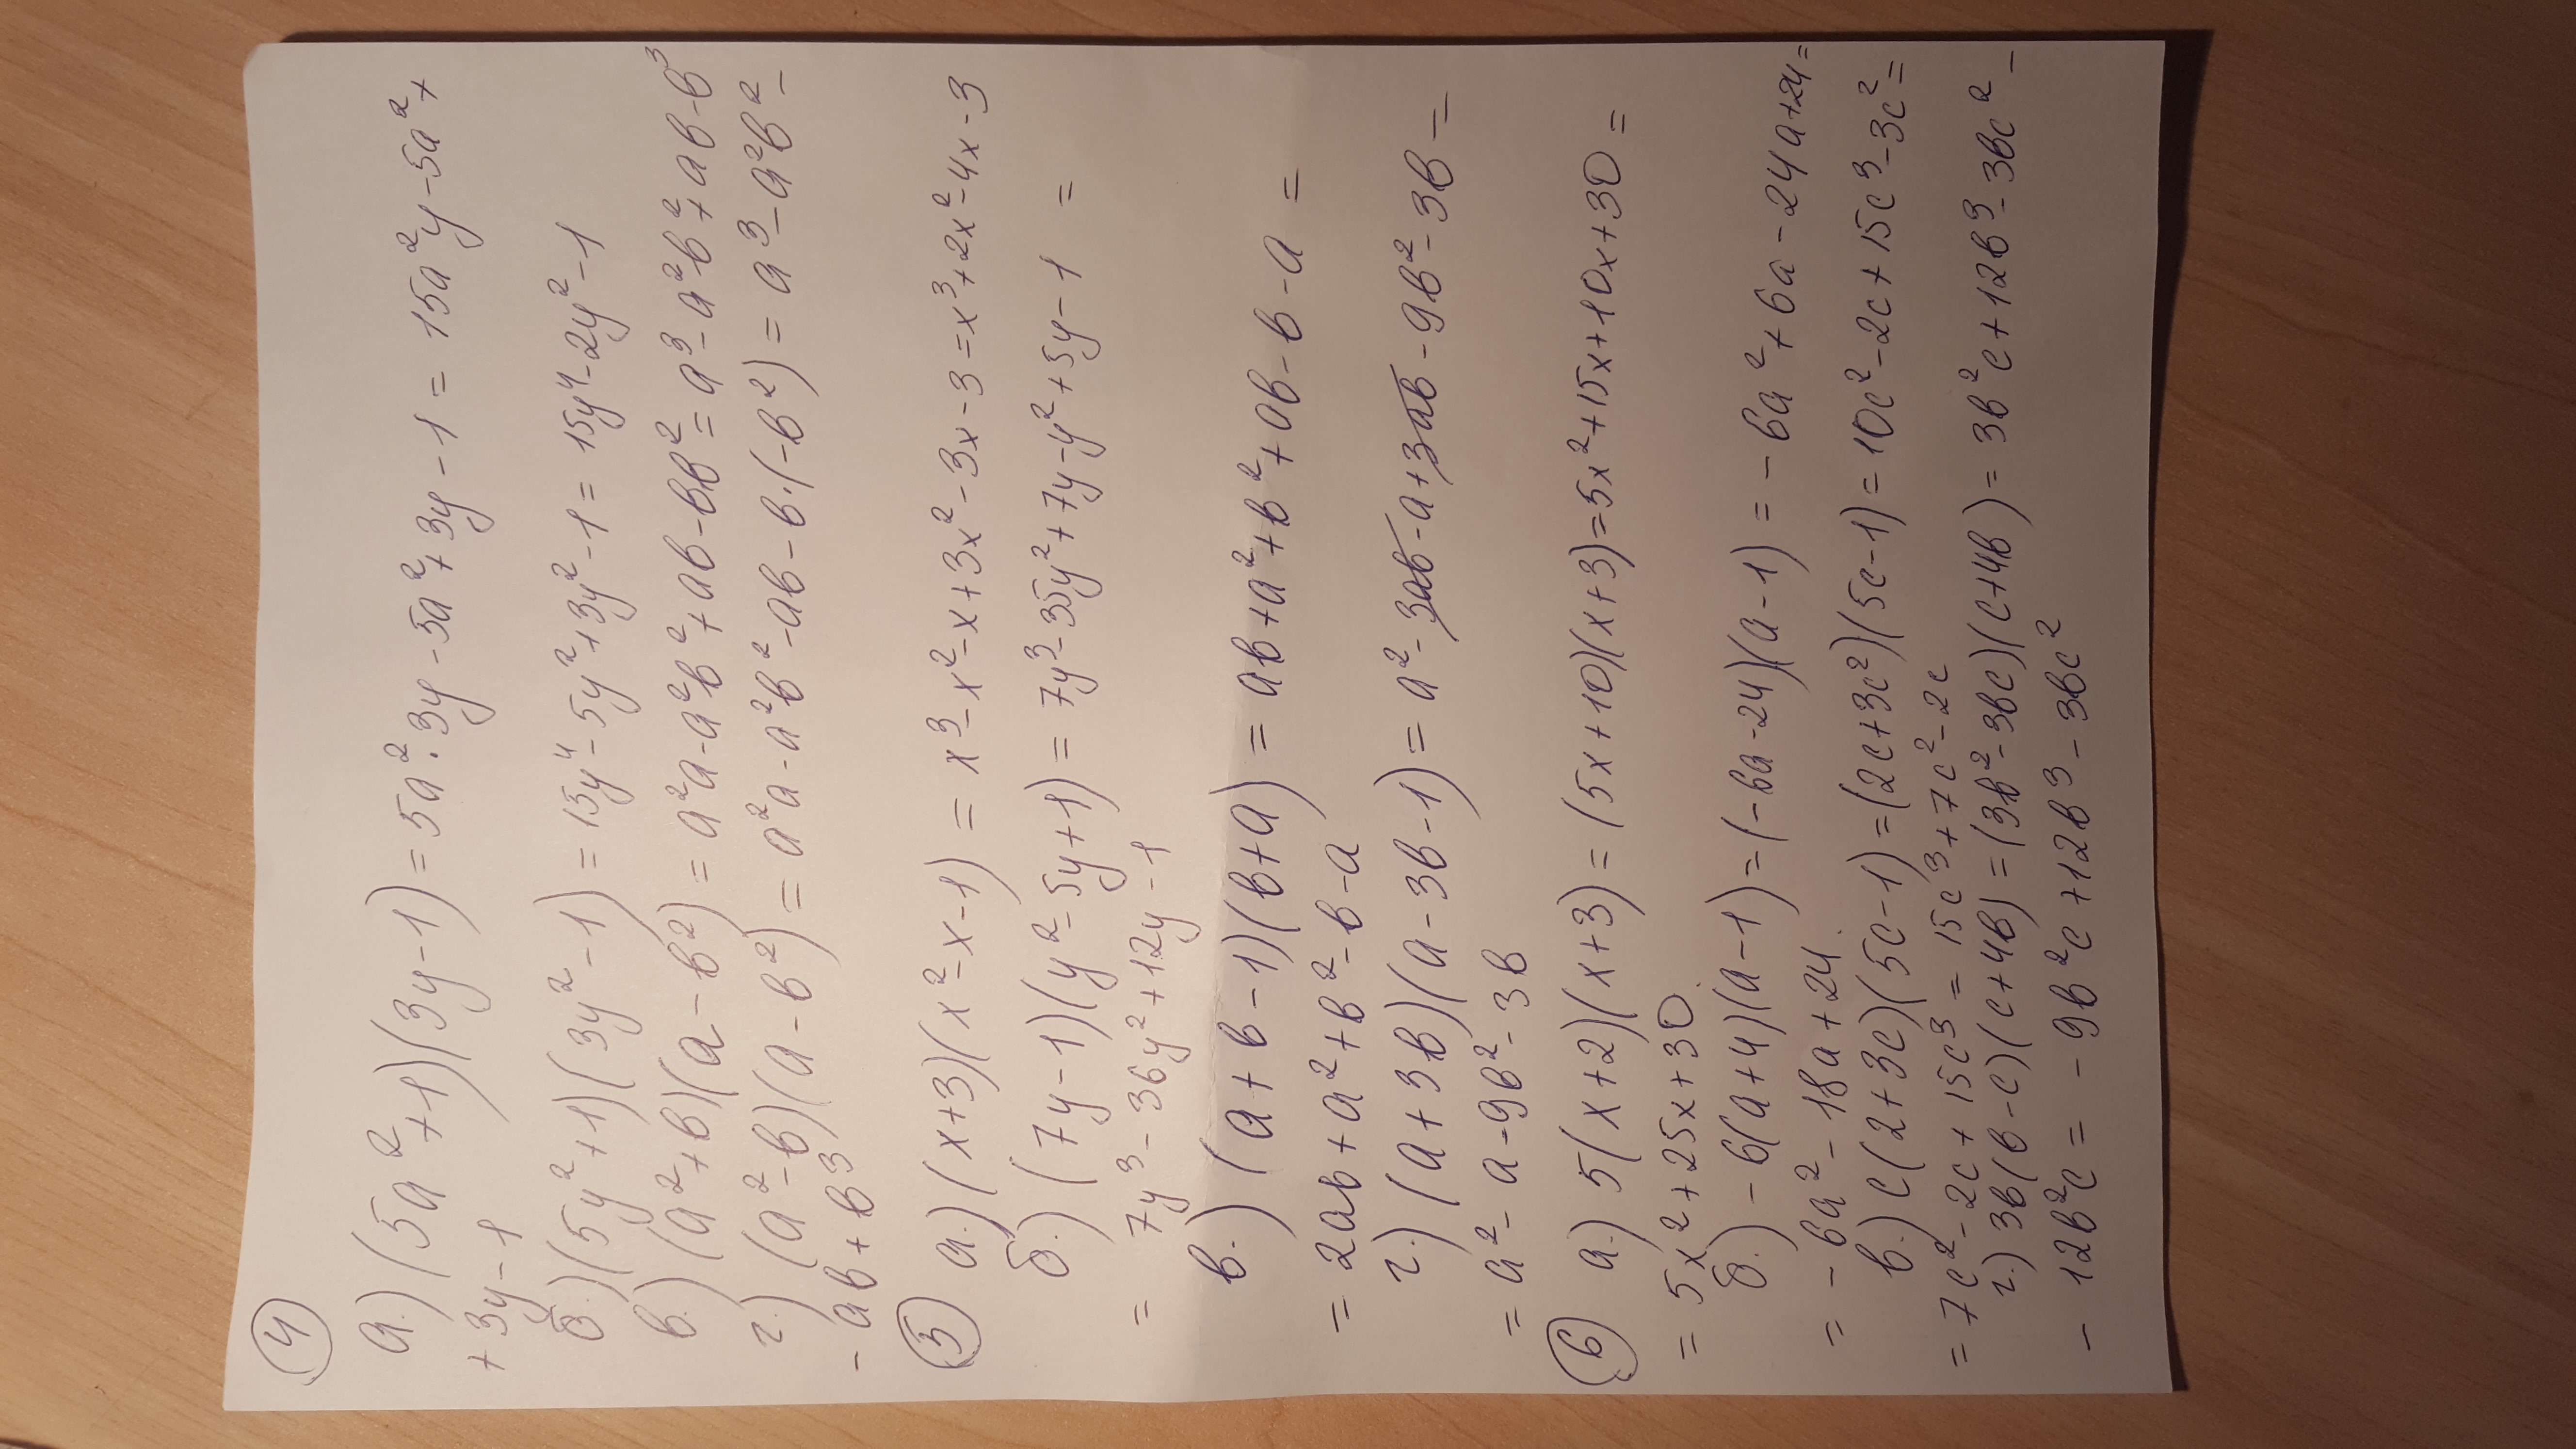 ④
а.) (5a²+1)(3y-1) = 5a²·3y-5a²+3y-1 = 15a²y-5a²+
+3y-1
б.) (5y²+1)(3y²-1) = 15y⁴-5y²+3y²-1 = 15y⁴-2y²-1
в.) (a²+b)(a-b²) = a²a-a²b²+ab-bb² = a³-a²b²+ab-b³
г.) (a²-b)(a-b²) = a²a-a²b²-ab-b·(-b²) = a³-a²b²-
-ab+b³
⑤ а.) (x+3)(x²-x-1) = x³-x²-x+3x²-3x-3=x³+2x²-4x-3
б.) (7y-1)(y²-5y+1) = 7y³-35y²+7y-y²+5y-1 =
= 7y³-36y²+12y-1
в.) (a+b-1)(b+a) = ab+a²+b²+ab-b-a =
= 2ab+a²+b²-b-a
г.) (a+3b)(a-3b-1) = a²-3ab-a+3ab-9b²-3b=
= a²-a-9b²-3b
⑥ а.) 5(x+2)(x+3) = (5x+10)(x+3)=5x²+15x+10x+30=
= 5x²+25x+30
б.) -6(a+4)(a-1) = (-6a-24)(a-1) = -6a²+6a-24a+24=
= -6a²-18a+24
в.) c(2+3c)(5c-1) = (2c+3c²)(5c-1)=10c²-2c+15c³-3c²=
= 7c²-2c+15c³ = 15c³+7c²-2c
г.) 3b(b-c)(c+4b) = (3b²-3bc)(c+4b) = 3b²c+12b³-3bc²-
-12b²c = -9b²c+12b³-3bc²